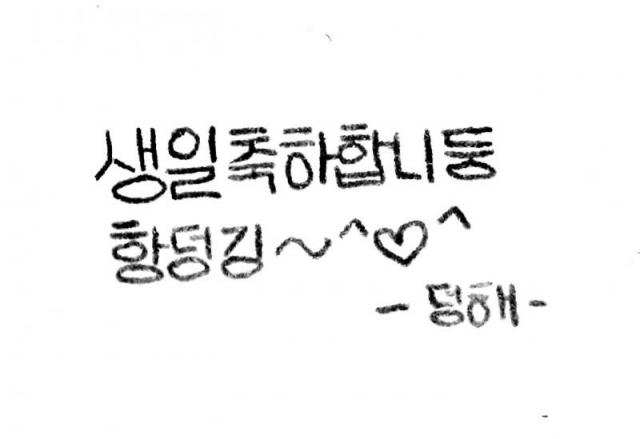 생일축하합니둥
항덩깅~^♡^
- 덩해 -